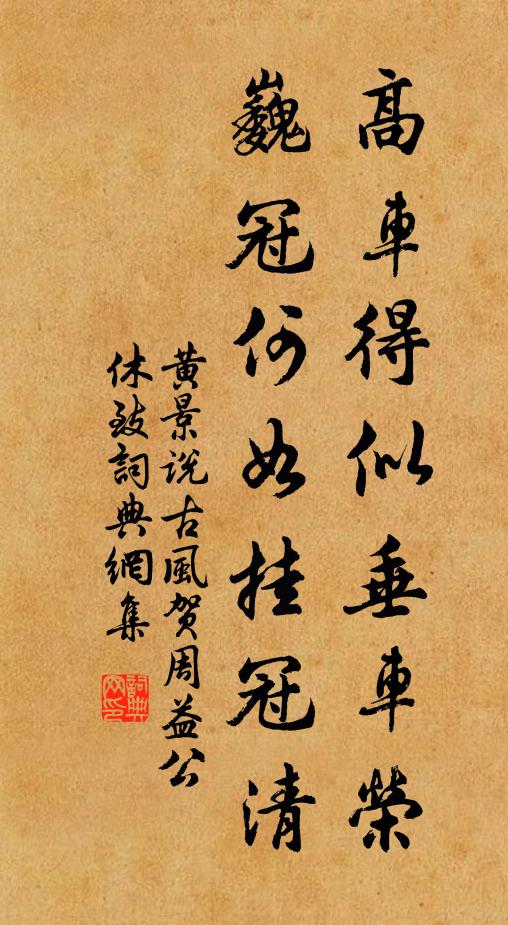 高車得似垂車榮
巍冠何如挂冠清
黃景說古風賀周益公
休致詞典網集
詞典網印